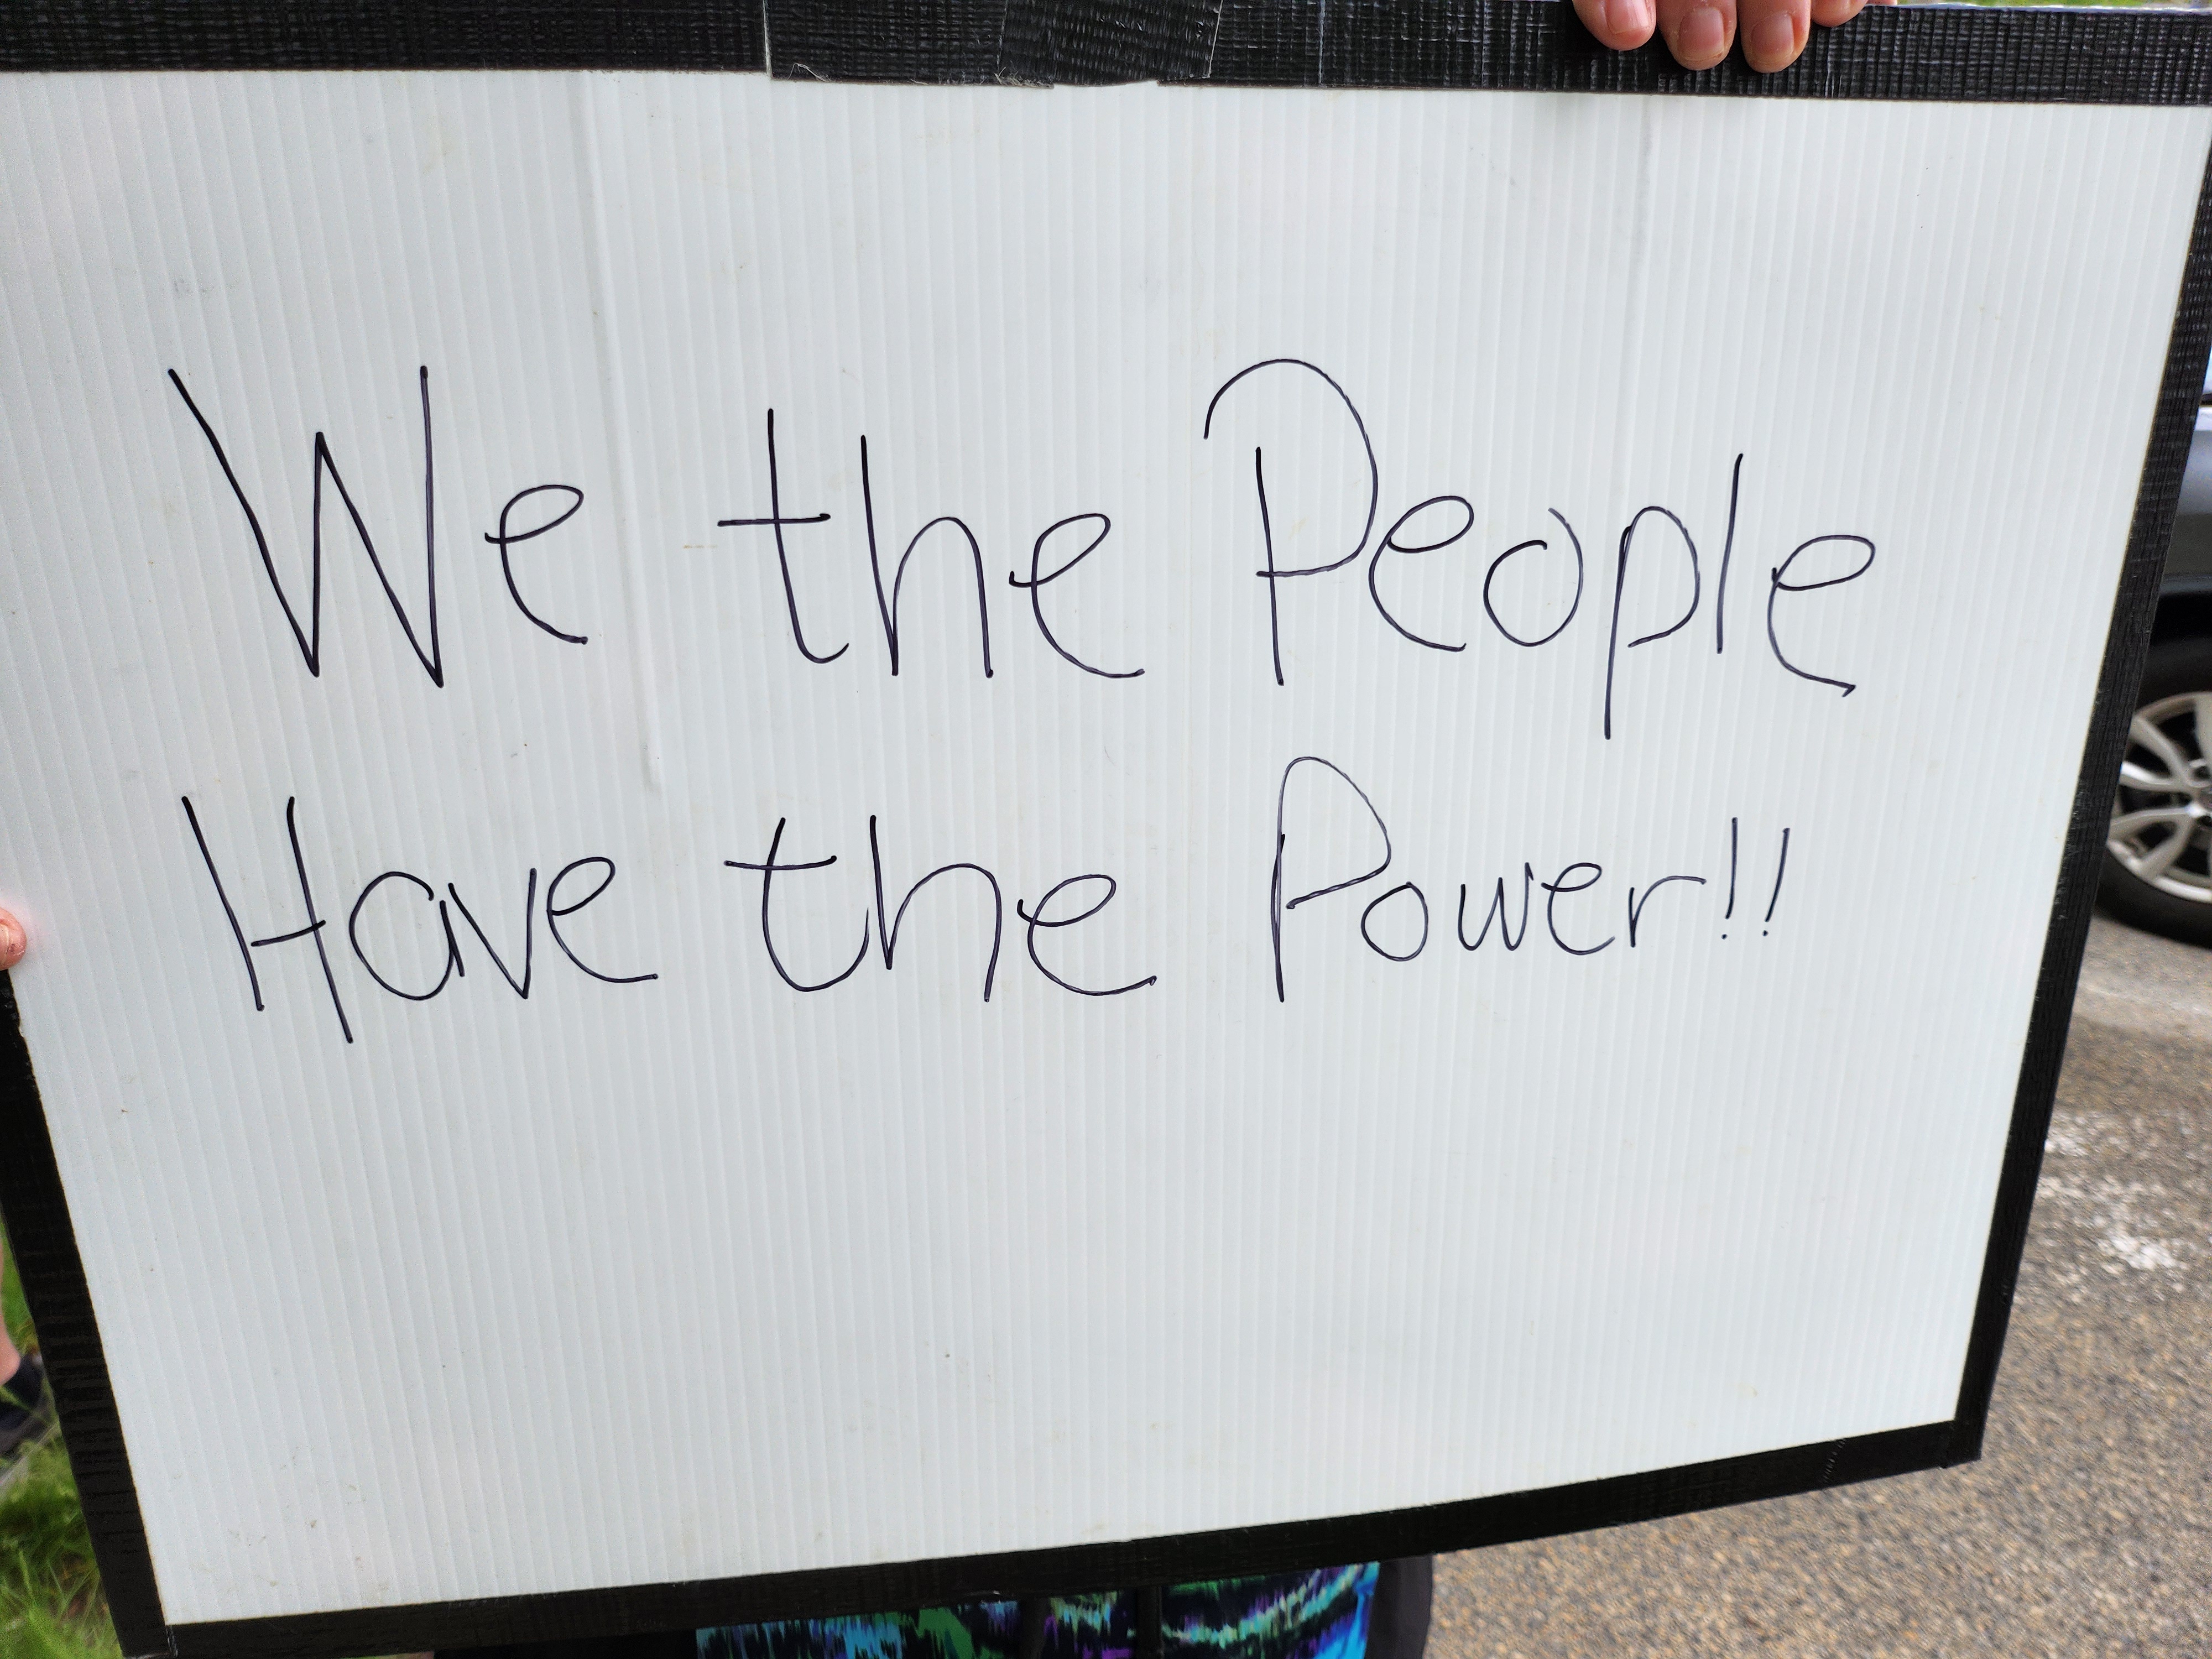 We the People
Have the Power!!